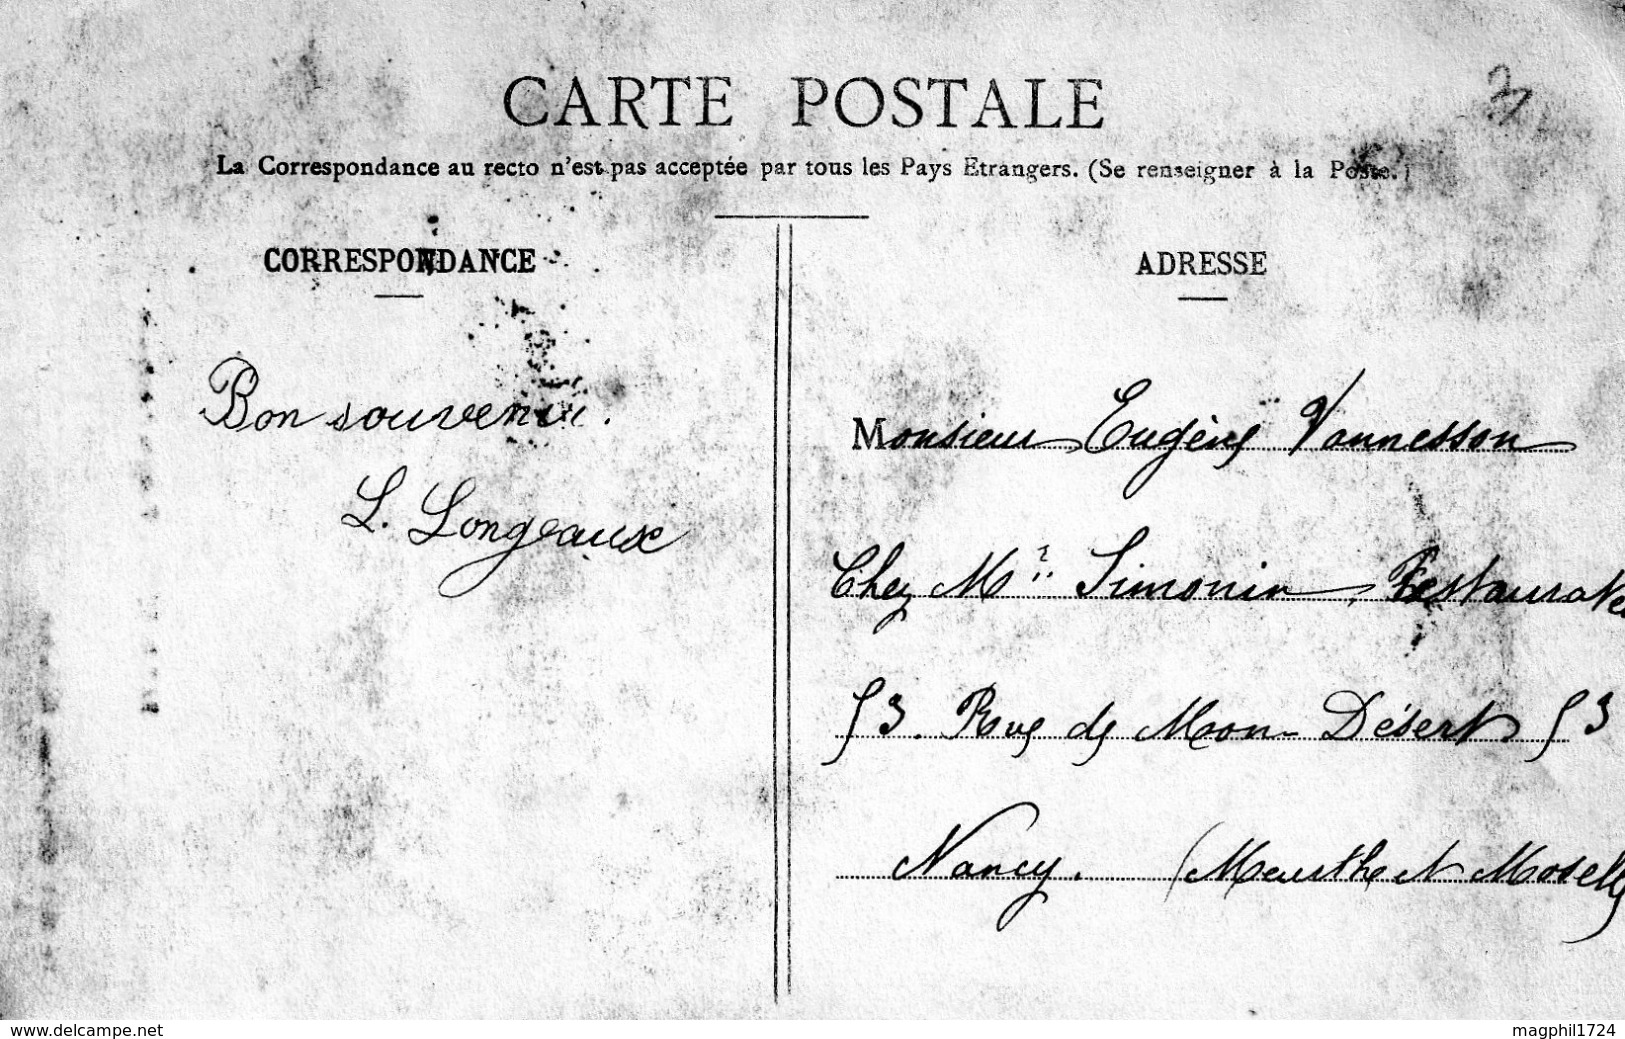 3
CARTE POSTALE
La Correspondance au recto n'est pas acceptée par tous les Pays Etrangers. (Se renseigner à la Poste.)
CORRESPONDANCE
Bon souvenir.
L. Longeaux
ADRESSE
Monsieur Eugène Vannesson
Chez Mr Simonin, Restaurate
53. Rue de Mon Désert 53
Nancy. (Meurthe et Moselle
www.delcampe.net
magphil1724